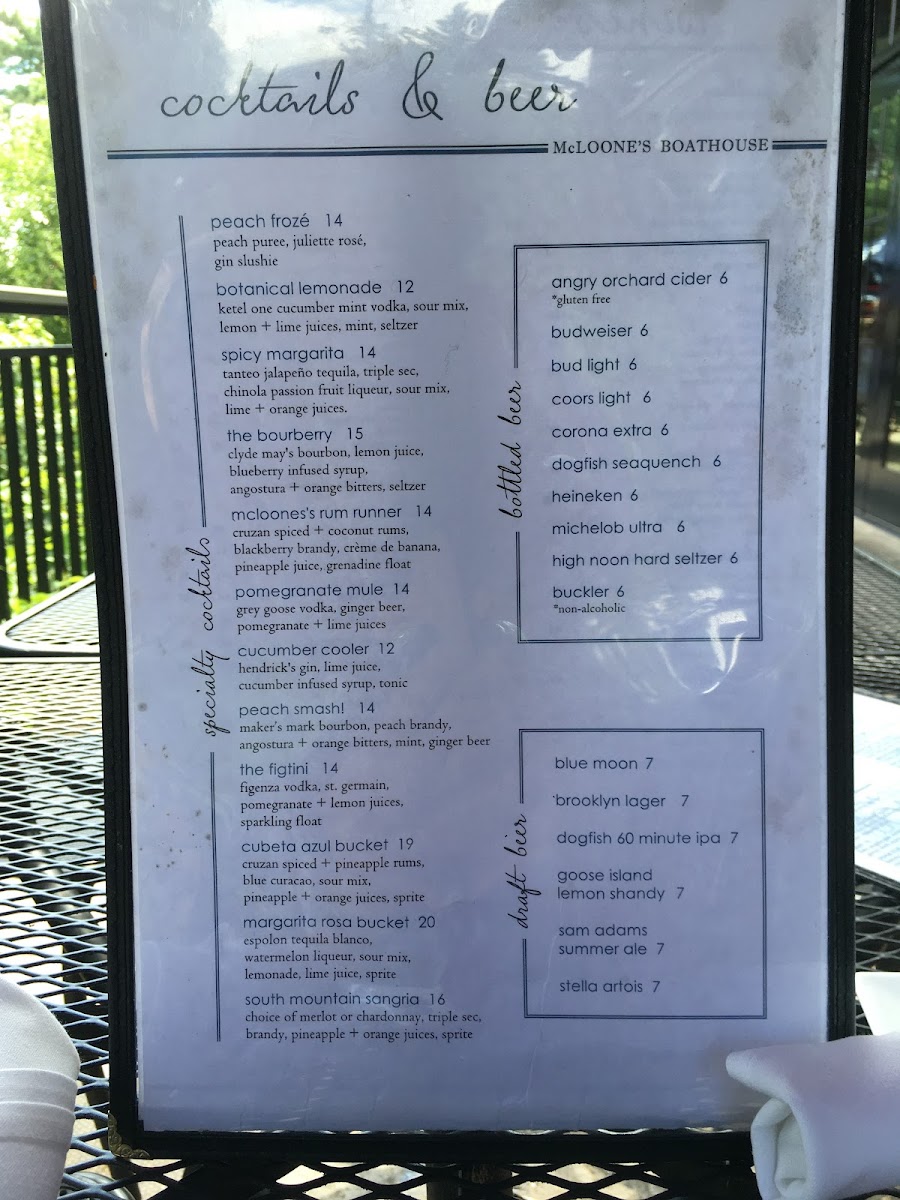 cocktails & beer
McLOONE'S BOATHOUSE
specialty cocktails
peach frozé 14
peach puree, juliette rosé,
gin slushie
botanical lemonade 12
ketel one cucumber mint vodka, sour mix,
lemon + lime juices, mint, seltzer
spicy margarita 14
tanteo jalapeño tequila, triple sec,
chinola passion fruit liqueur, sour mix,
lime + orange juices.
the bourberry 15
clyde may's bourbon, lemon juice,
blueberry infused syrup,
angostura + orange bitters, seltzer
mcloones's rum runner 14
cruzan spiced + coconut rums,
blackberry brandy, crème de banana,
pineapple juice, grenadine float
pomegranate mule 14
grey goose vodka, ginger beer,
pomegranate + lime juices
cucumber cooler 12
hendrick's gin, lime juice,
cucumber infused syrup, tonic
peach smash! 14
maker's mark bourbon, peach brandy,
angostura + orange bitters, mint, ginger beer
the figtini 14
figenza vodka, st. germain,
pomegranate + lemon juices,
sparkling float
cubeta azul bucket 19
cruzan spiced + pineapple rums,
blue curacao, sour mix,
pineapple + orange juices, sprite
margarita rosa bucket 20
espolon tequila blanco,
watermelon liqueur, sour mix,
lemonade, lime juice, sprite
south mountain sangria 16
choice of merlot or chardonnay, triple sec,
brandy, pineapple + orange juices, sprite
botttled beer
angry orchard cider 6
*gluten free
budweiser 6
bud light 6
coors light 6
corona extra 6
dogfish seaquench 6
heineken 6
michelob ultra 6
high noon hard seltzer 6
buckler 6
*non-alcoholic
draft beer
blue moon 7
brooklyn lager 7
dogfish 60 minute ipa 7
goose island
lemon shandy 7
sam adams
summer ale 7
stella artois 7